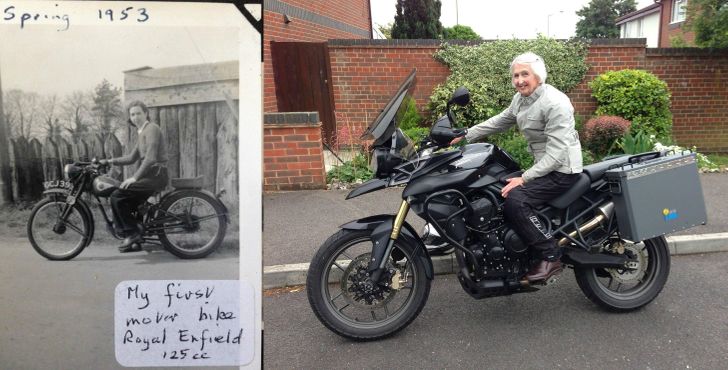 Spring 1953
GCJ 39
My first
motor bike
Royal Enfield
125cc